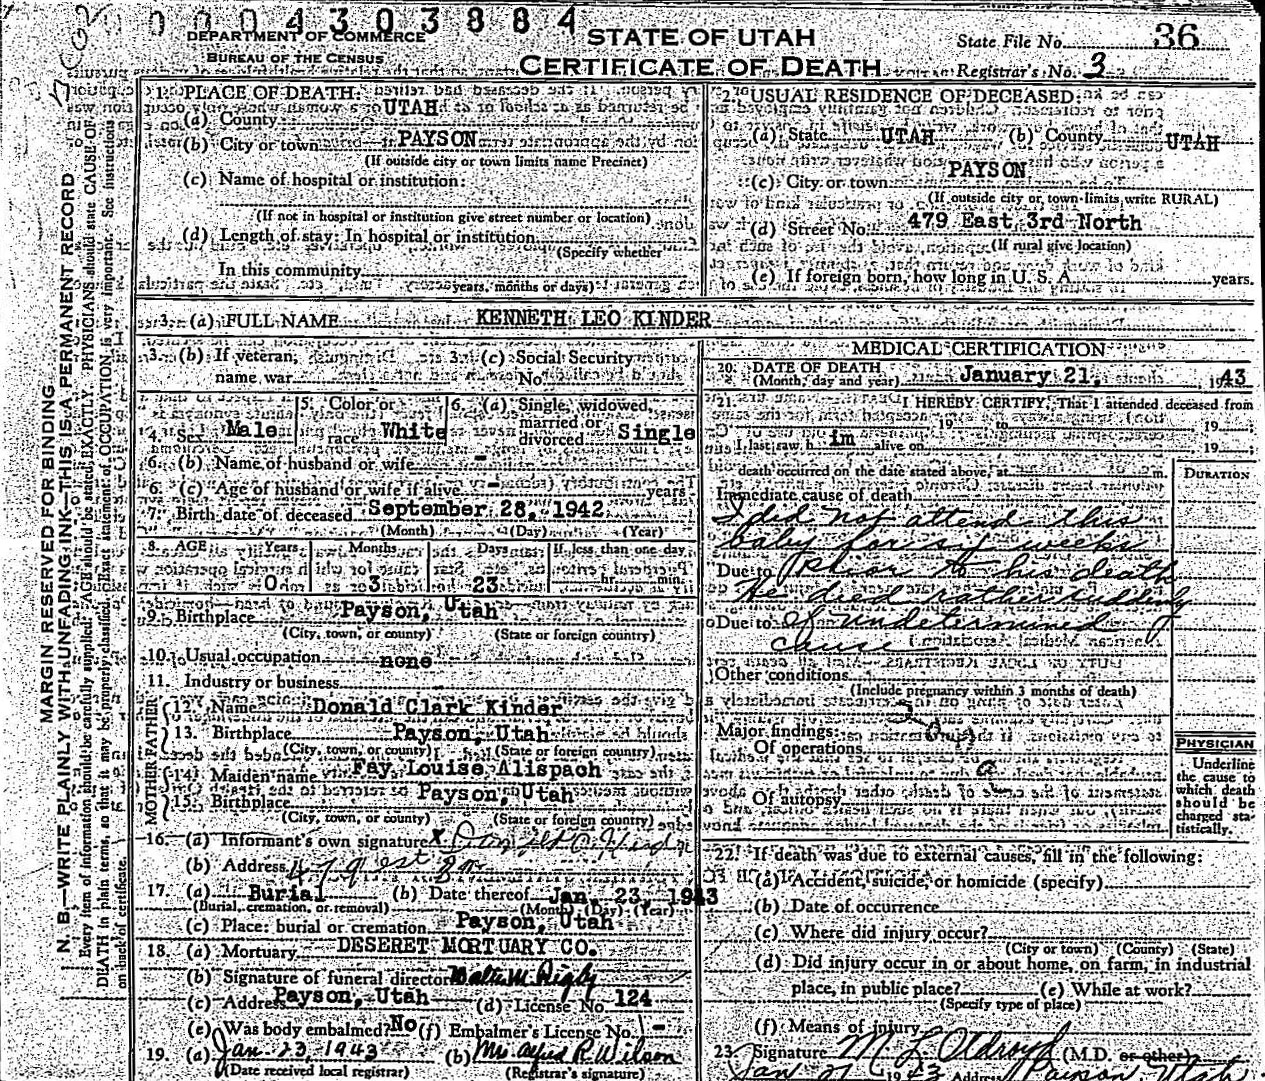 0004303884
DEPARTMENT OF COMMERCE
BUREAU OF THE CENSUS
STATE OF UTAH
CERTIFICATE OF DEATH
State File No. 36
Registrar's No. 3
MARGIN RESERVED FOR BINDING
N. B.—WRITE PLAINLY WITH UNFADING INK—THIS IS A PERMANENT RECORD
Every item of information should be carefully supplied. AGE should be stated EXACTLY. PHYSICIANS should state CAUSE OF
DEATH in plain terms, so that it may be properly classified. Exact statement of OCCUPATION is very important. See instructions
on back of certificate.
1. PLACE OF DEATH:
(a) County UTAH
(b) City or town PAYSON
(If outside city or town limits name Precinct)
(c) Name of hospital or institution:
(If not in hospital or institution give street number or location)
(d) Length of stay: In hospital or institution
(Specify whether
In this community
years, months or days)
2. USUAL RESIDENCE OF DECEASED:
(a) State UTAH (b) County UTAH
(c) City or town PAYSON
(If outside city or town limits write RURAL)
(d) Street No. 479 East 3rd North
(If rural give location)
(e) If foreign born, how long in U. S. A. years.
3. (a) FULL NAME KENNETH LEO KINDER
3. (b) If veteran, name war
3. (c) Social Security No.
4. Sex Male
5. Color or race White
6. (a) Single, widowed, married or divorced Single
6. (b) Name of husband or wife -
6. (c) Age of husband or wife if alive - years
7. Birth date of deceased September 28, 1942
(Month) (Day) (Year)
8. AGE Years Months Days If less than one day
0 3 23 hr. min.
9. Birthplace Payson, Utah
(City, town, or county) (State or foreign country)
10. Usual occupation none
11. Industry or business
FATHER
12. Name Donald Clark Kinder
13. Birthplace Payson, Utah
(City, town, or county) (State or foreign country)
MOTHER
14. Maiden name Fay Louise Alispach
15. Birthplace Payson, Utah
(City, town, or county) (State or foreign country)
16. (a) Informant's own signature x
(b) Address 479 est
17. (a) Burial (b) Date thereof Jan. 23, 1943
(Burial, cremation, or removal) (Month) (Day) (Year)
(c) Place: burial or cremation Payson, Utah
18. (a) Mortuary DESERET MORTUARY CO.
(b) Signature of funeral director Walter M. Rigby
(c) Address Payson, Utah (d) License No. 124
(e) Was body embalmed? No (f) Embalmer's License No. -
19. (a) Jan. 23, 1943 (b) Mrs Alfred R. Wilson
(Date received local registrar) (Registrar's signature)
MEDICAL CERTIFICATION
20. DATE OF DEATH
(Month, day and year) January 21, 1943
21. I HEREBY CERTIFY, That I attended deceased from
19 to 19 ;
I last saw h im alive on 19 ;
death occurred on the date stated above, at m.
DURATION
Immediate cause of death
I did not attend this
baby for six weeks
Due to prior to his death
He died rather suddenly
Due to of undetermined
cause
Other conditions
(Include pregnancy within 3 months of death)
Major findings:
Of operations
Of autopsy
PHYSICIAN
Underline
the cause to
which death
should be
charged sta-
tistically.
22. If death was due to external causes, fill in the following:
(a) Accident, suicide, or homicide (specify)
(b) Date of occurrence
(c) Where did injury occur?
(City or town) (County) (State)
(d) Did injury occur in or about home, on farm, in industrial
place, in public place? (e) While at work?
(Specify type of place)
(f) Means of injury
23. Signature M L Oldroyd (M.D. or other)
Jan 1943 Address Payson Utah